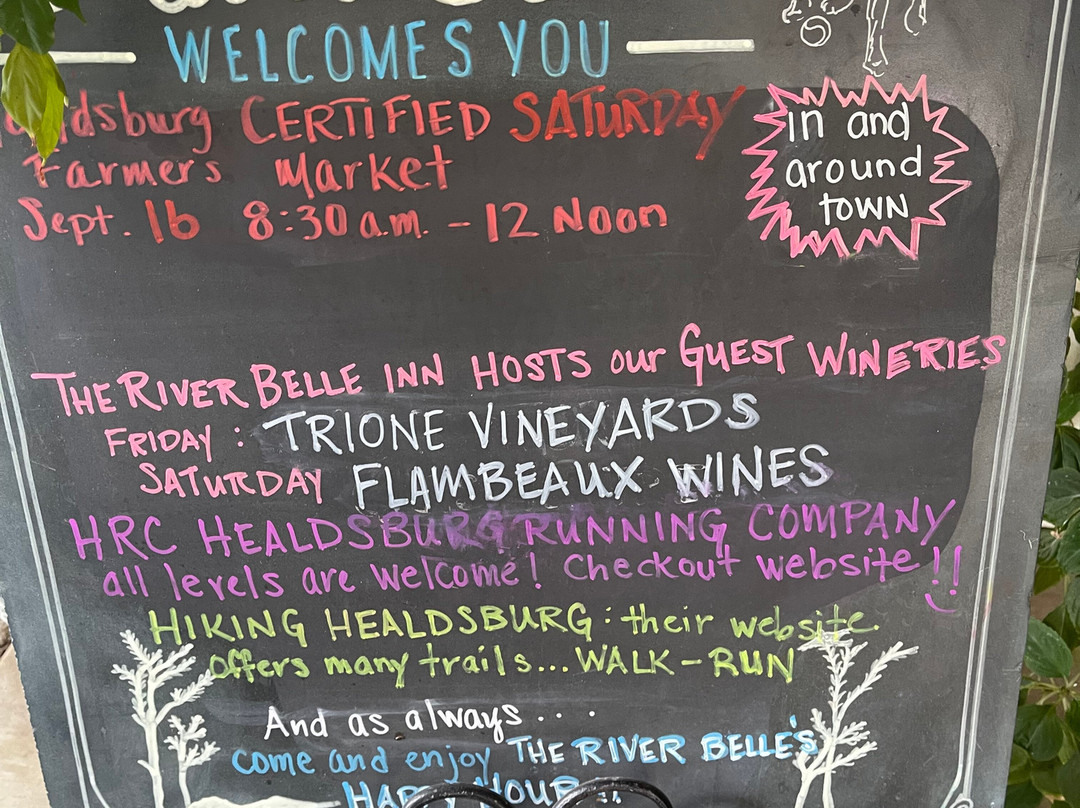 WELCOMES YOU
CERTIFIED SATURDAY
Farmers Market
Sept. 16 8:30 a.m. - 12 Noon
in and
around
TOWN
THE RIVER BELLE INN HOSTS our GUEST WINERIES
FRIDAY : TRIONE VINEYARDS
SATURDAY FLAMBEAUX WINES
HRC HEALDSBURG RUNNING COMPANY
all levels are welcome! Checkout website!!
HIKING HEALDSBURG: their website.
offers many trails... WALK - RUN
And as always....
come and enjoy THE RIVER BELLE'S
HAPPY HOUR!!